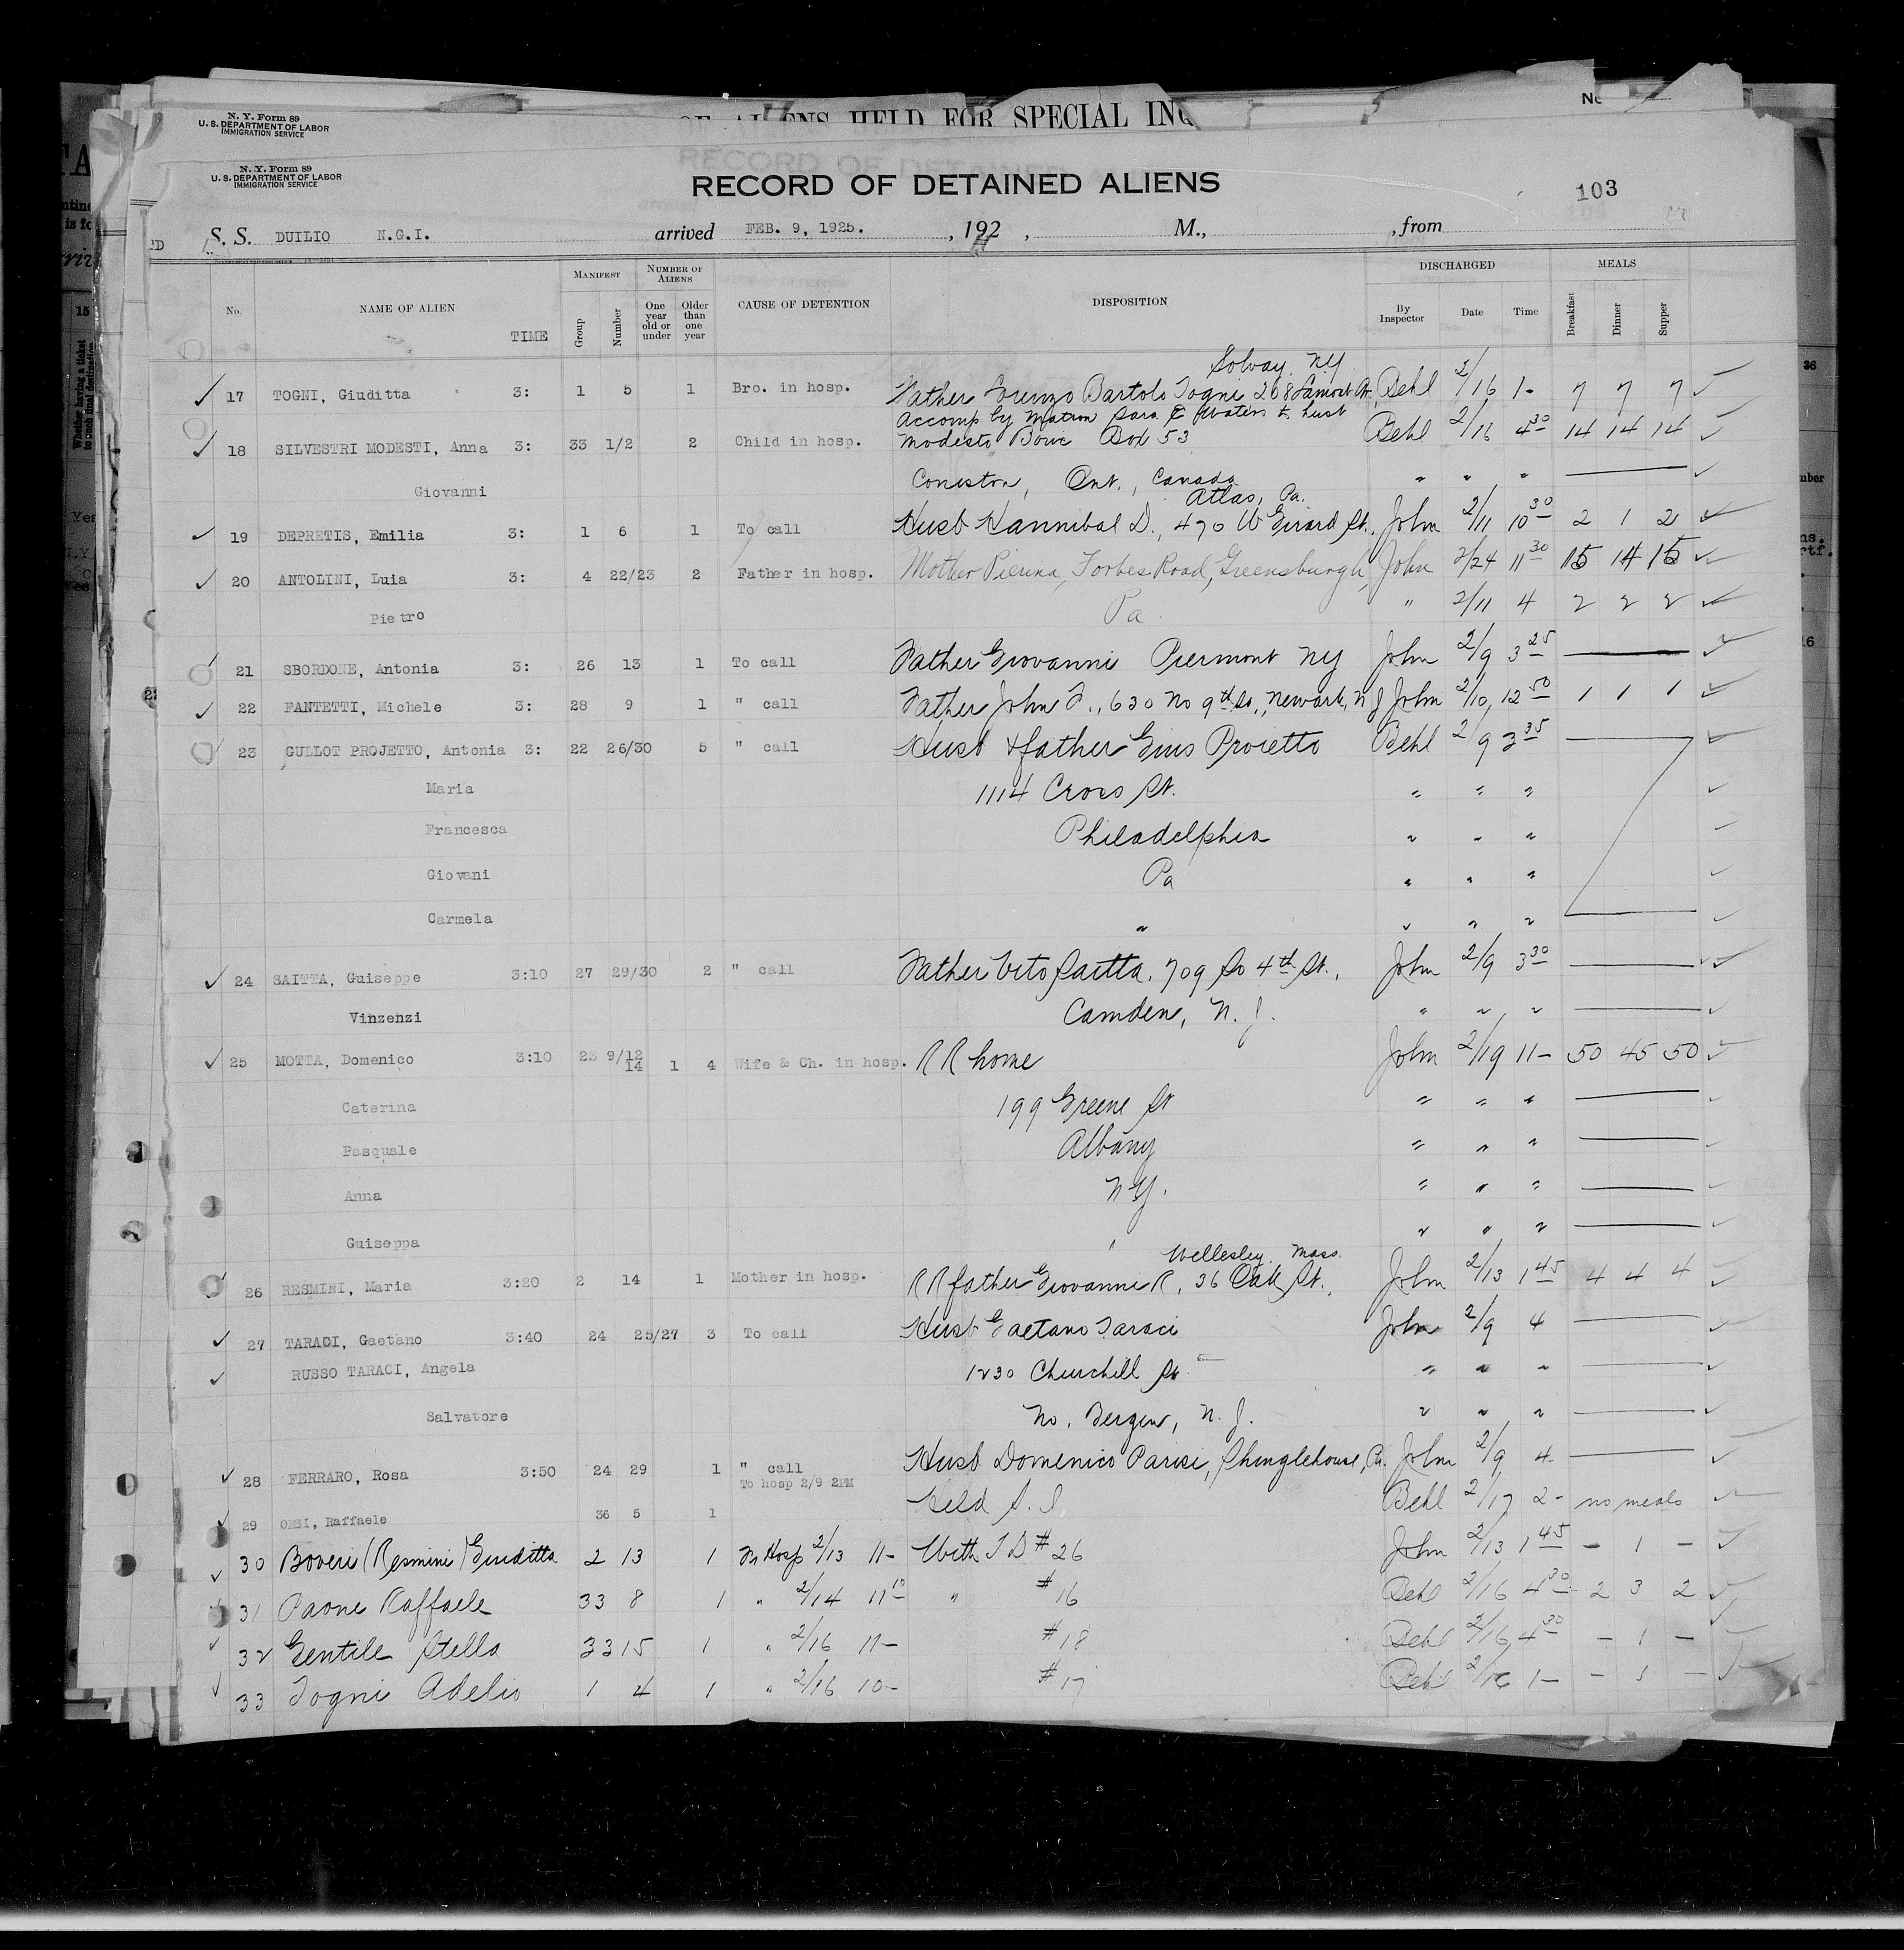 N. Y. Form 89
U. S. DEPARTMENT OF LABOR
IMMIGRATION SERVICE
OF ALIENS HELD FOR SPECIAL INQ
N. Y. Form 89
U. S. DEPARTMENT OF LABOR
IMMIGRATION SERVICE
RECORD OF DETAINED ALIENS
103
S. S. DUILIO N.G.I. arrived FEB. 9, 1925. , 192 , M., , from
No. NAME OF ALIEN TIME MANIFEST Group Number NUMBER OF ALIENS One year old or under Older than one year CAUSE OF DETENTION DISPOSITION DISCHARGED By Inspector Date Time MEALS Breakfast Dinner Supper
Solvay, NY
17 TOGNI, Giuditta 3: 1 5 1 Bro. in hosp. Father Lorenzo Bartolo Togni 268 Lamont St. Behl 2/16 1- 7 7 7
Accomp by Matron Sara E Waters to husb
18 SILVESTRI MODESTI, Anna 3: 33 1/2 2 Child in hosp. Modesto Box 53 Behl 2/16 4 30 14 14 14
Giovanni Coniston, Ont., Canada " " "
Atlas, Pa.
19 DEPRETIS, Emilia 3: 1 6 1 To call Husb Hannibal D., 470 W Girard St., John 2/11 10 30 2 1 2
20 ANTOLINI, Luia 3: 4 22/23 2 Father in hosp. Mother Pierina, Forbes Road, Greensburgh, John 2/24 11 30 15 14 15
Pietro Pa. " 2/11 4 2 2 2
21 SBORDONE, Antonia 3: 26 13 1 To call Father Giovanni Piermont NY John 2/9 3 25
22 FANTETTI, Michele 3: 28 9 1 " call Father John F., 630 No 9th St., Newark, N J John 2/10 12 50 1 1 1
23 GULLOT PROJETTO, Antonia 3: 22 26/30 5 " call Husb & father Gius Proietto Behl 2/9 3 35
Maria 1114 Cross St. " " "
Francesca Philadelphia " " "
Giovani Pa " " "
Carmela " " " "
24 SAITTA, Guiseppe 3:10 27 29/30 2 " call Father Vito Saitta, 709 So 4th St., John 2/9 3 30
Vinzenzi Camden, N. J. " " "
25 MOTTA, Domenico 3:10 23 9/12 14 1 4 Wife & Ch. in hosp. R R home John 2/19 11- 50 45 50
Caterina 199 Greene St " " "
Pasquale Albany " " "
Anna NY. " " "
Guiseppa " " "
Wellesley, Mass.
26 RESMINI, Maria 3:20 2 14 1 Mother in hosp. R R father Giovanni R, 36 Oak St., John 2/13 1 45 4 4 4
27 TARACI, Gaetano 3:40 24 25/27 3 To call Husb Gaetano Taraci John 2/9 4
RUSSO TARACI, Angela 1230 Churchill St " " "
Salvatore No. Bergen, N. J. " " "
28 FERRARO, Rosa 3:50 24 29 1 " call Husb Domenico Parise, Shinglehouse, Pa. John 2/9 4
To hosp 2/9 2PM
29 ORSI, Raffaele 36 5 1 Held S. I Behl 2/17 2- no meals
30 Boveri (Resmini) Giuditta 2 13 1 In Hosp 2/13 11- With T D # 26 John 2/13 1 45 - 1 -
31 Paone Raffaele 33 8 1 " 2/14 11 10 " # 16 Behl 2/16 4 30 2 3 2
32 Gentile Stella 33 15 1 " 2/16 11- # 18 Behl 2/16 4 30 - 1 -
33 Togni Adelio 1 4 1 " 2/16 10- # 17 Behl 2/16 1- - 1 -